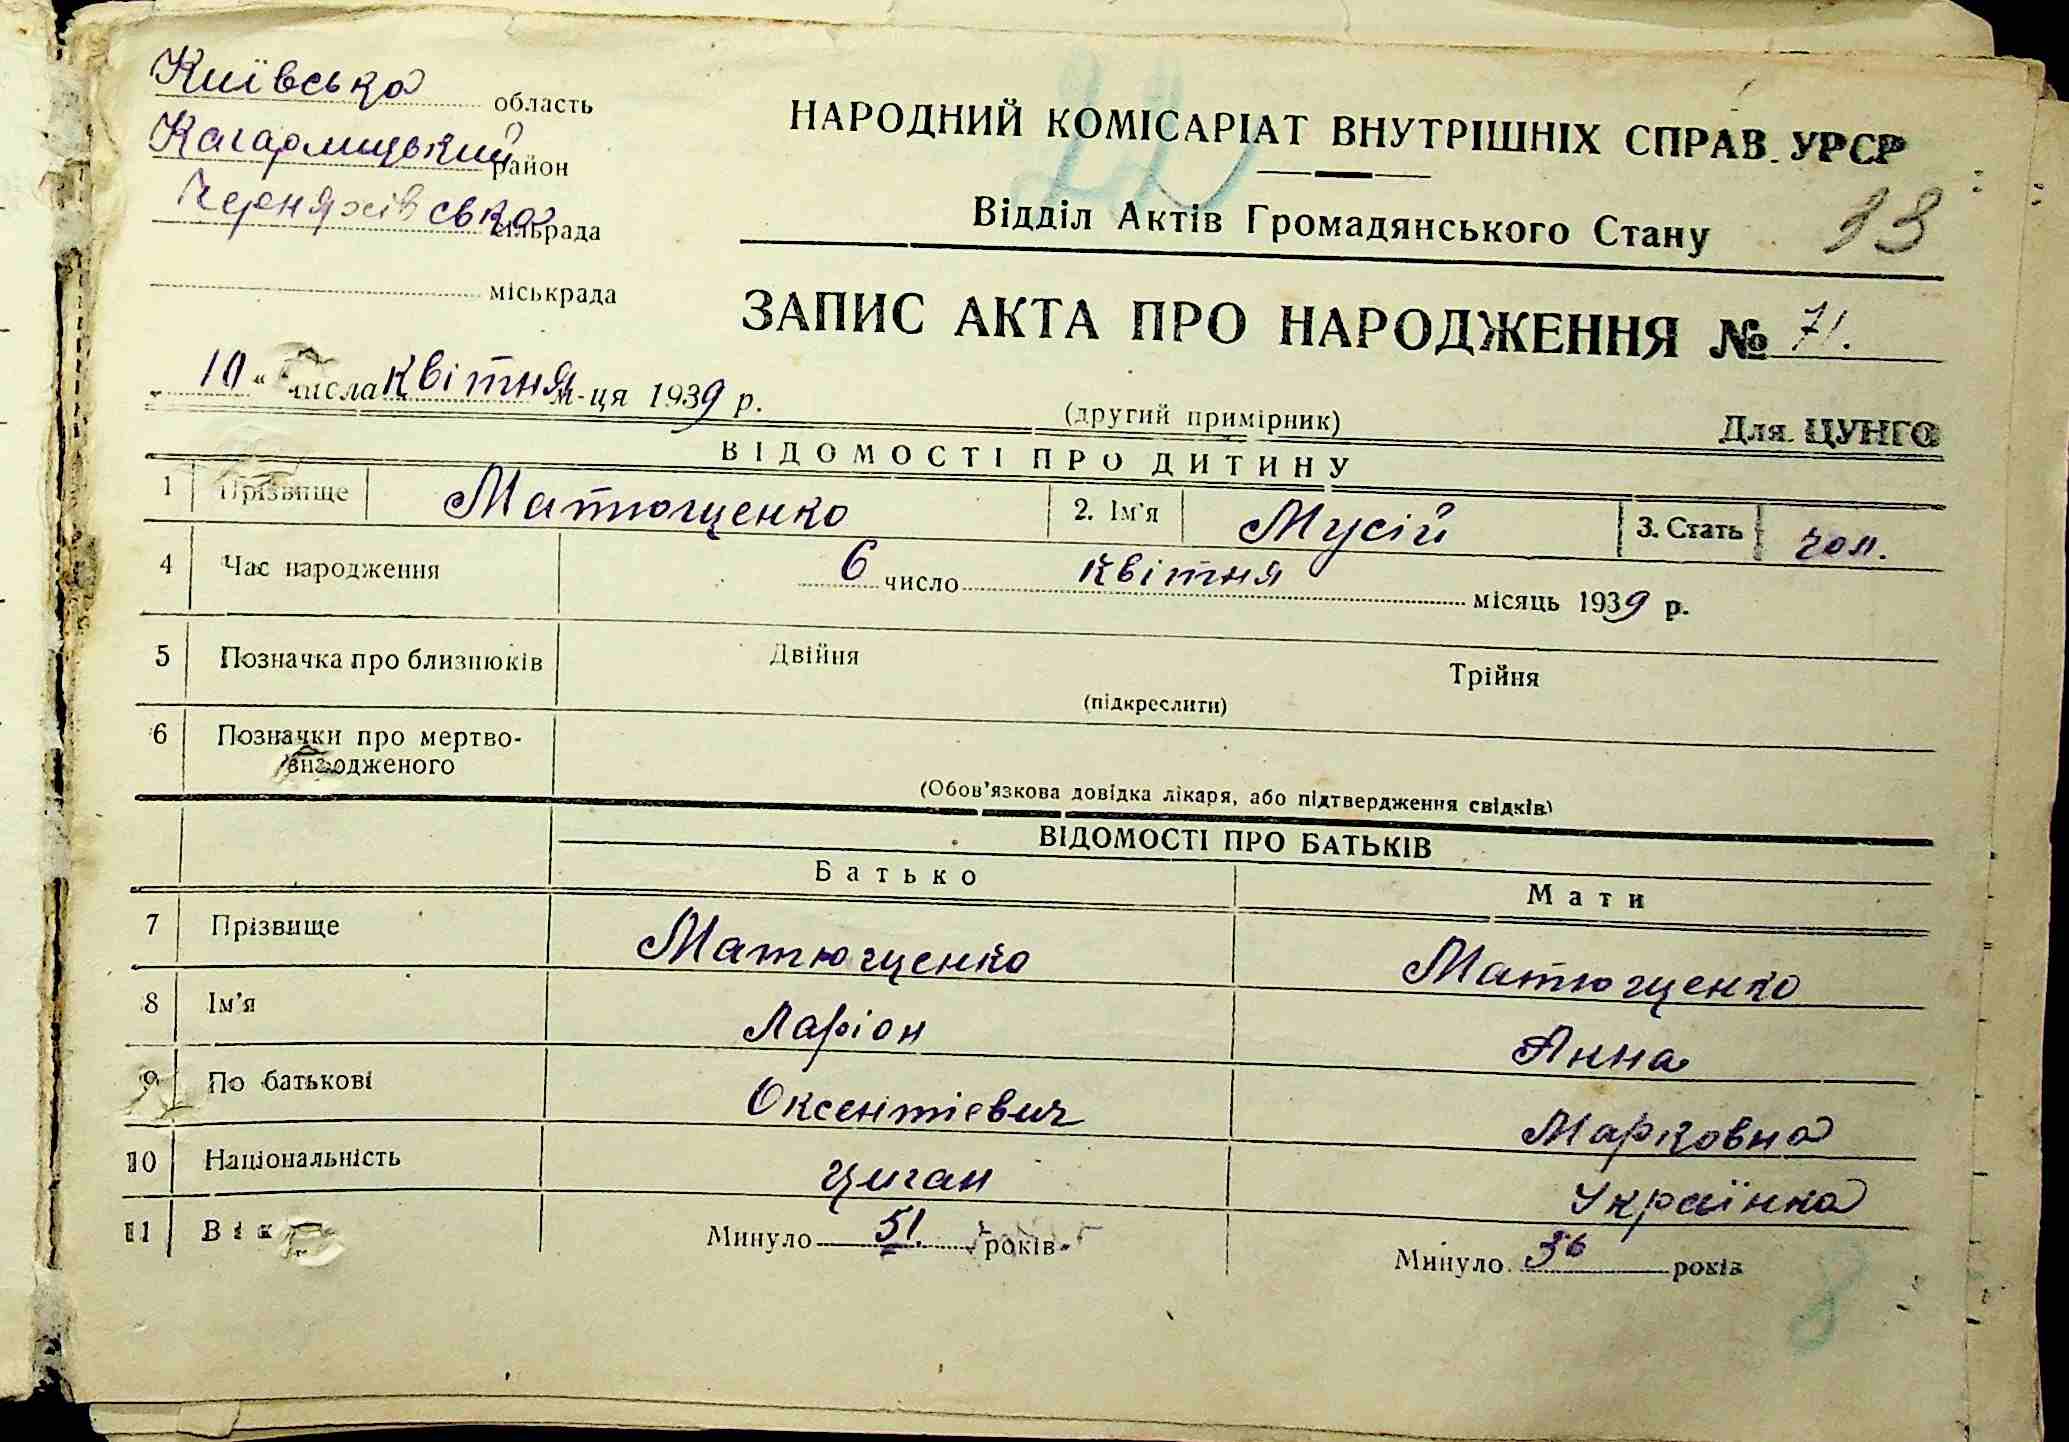 Київська область
Кагарлицький район
Черняхівська сільрада
міськрада
НАРОДНИЙ КОМІСАРІАТ ВНУТРІШНІХ СПРАВ УРСР
Відділ Актів Громадянського Стану
22
ЗАПИС АКТА ПРО НАРОДЖЕННЯ № 71.
„10“ числа квітня м-ця 1939 р.
(другий примірник)
Для ЦУНГО
ВІДОМОСТІ ПРО ДИТИНУ
1 Прізвище Матющенко 2. Ім'я Мусій 3. Стать чол.
4 Час народження 6 число квітня місяць 1939 р.
5 Позначка про близнюків Двійня Трійня
(підкреслити)
6 Позначки про мертво-
народженого
(Обов'язкова довідка лікаря, або підтвердження свідків)
ВІДОМОСТІ ПРО БАТЬКІВ
Батько Мати
7 Прізвище Матющенко Матющенко
8 Ім'я Ларіон Анна
9 По батькові Оксентієвич Марковна
10 Національність циган Українка
11 Вік Минуло 51. років Минуло 36 років
8